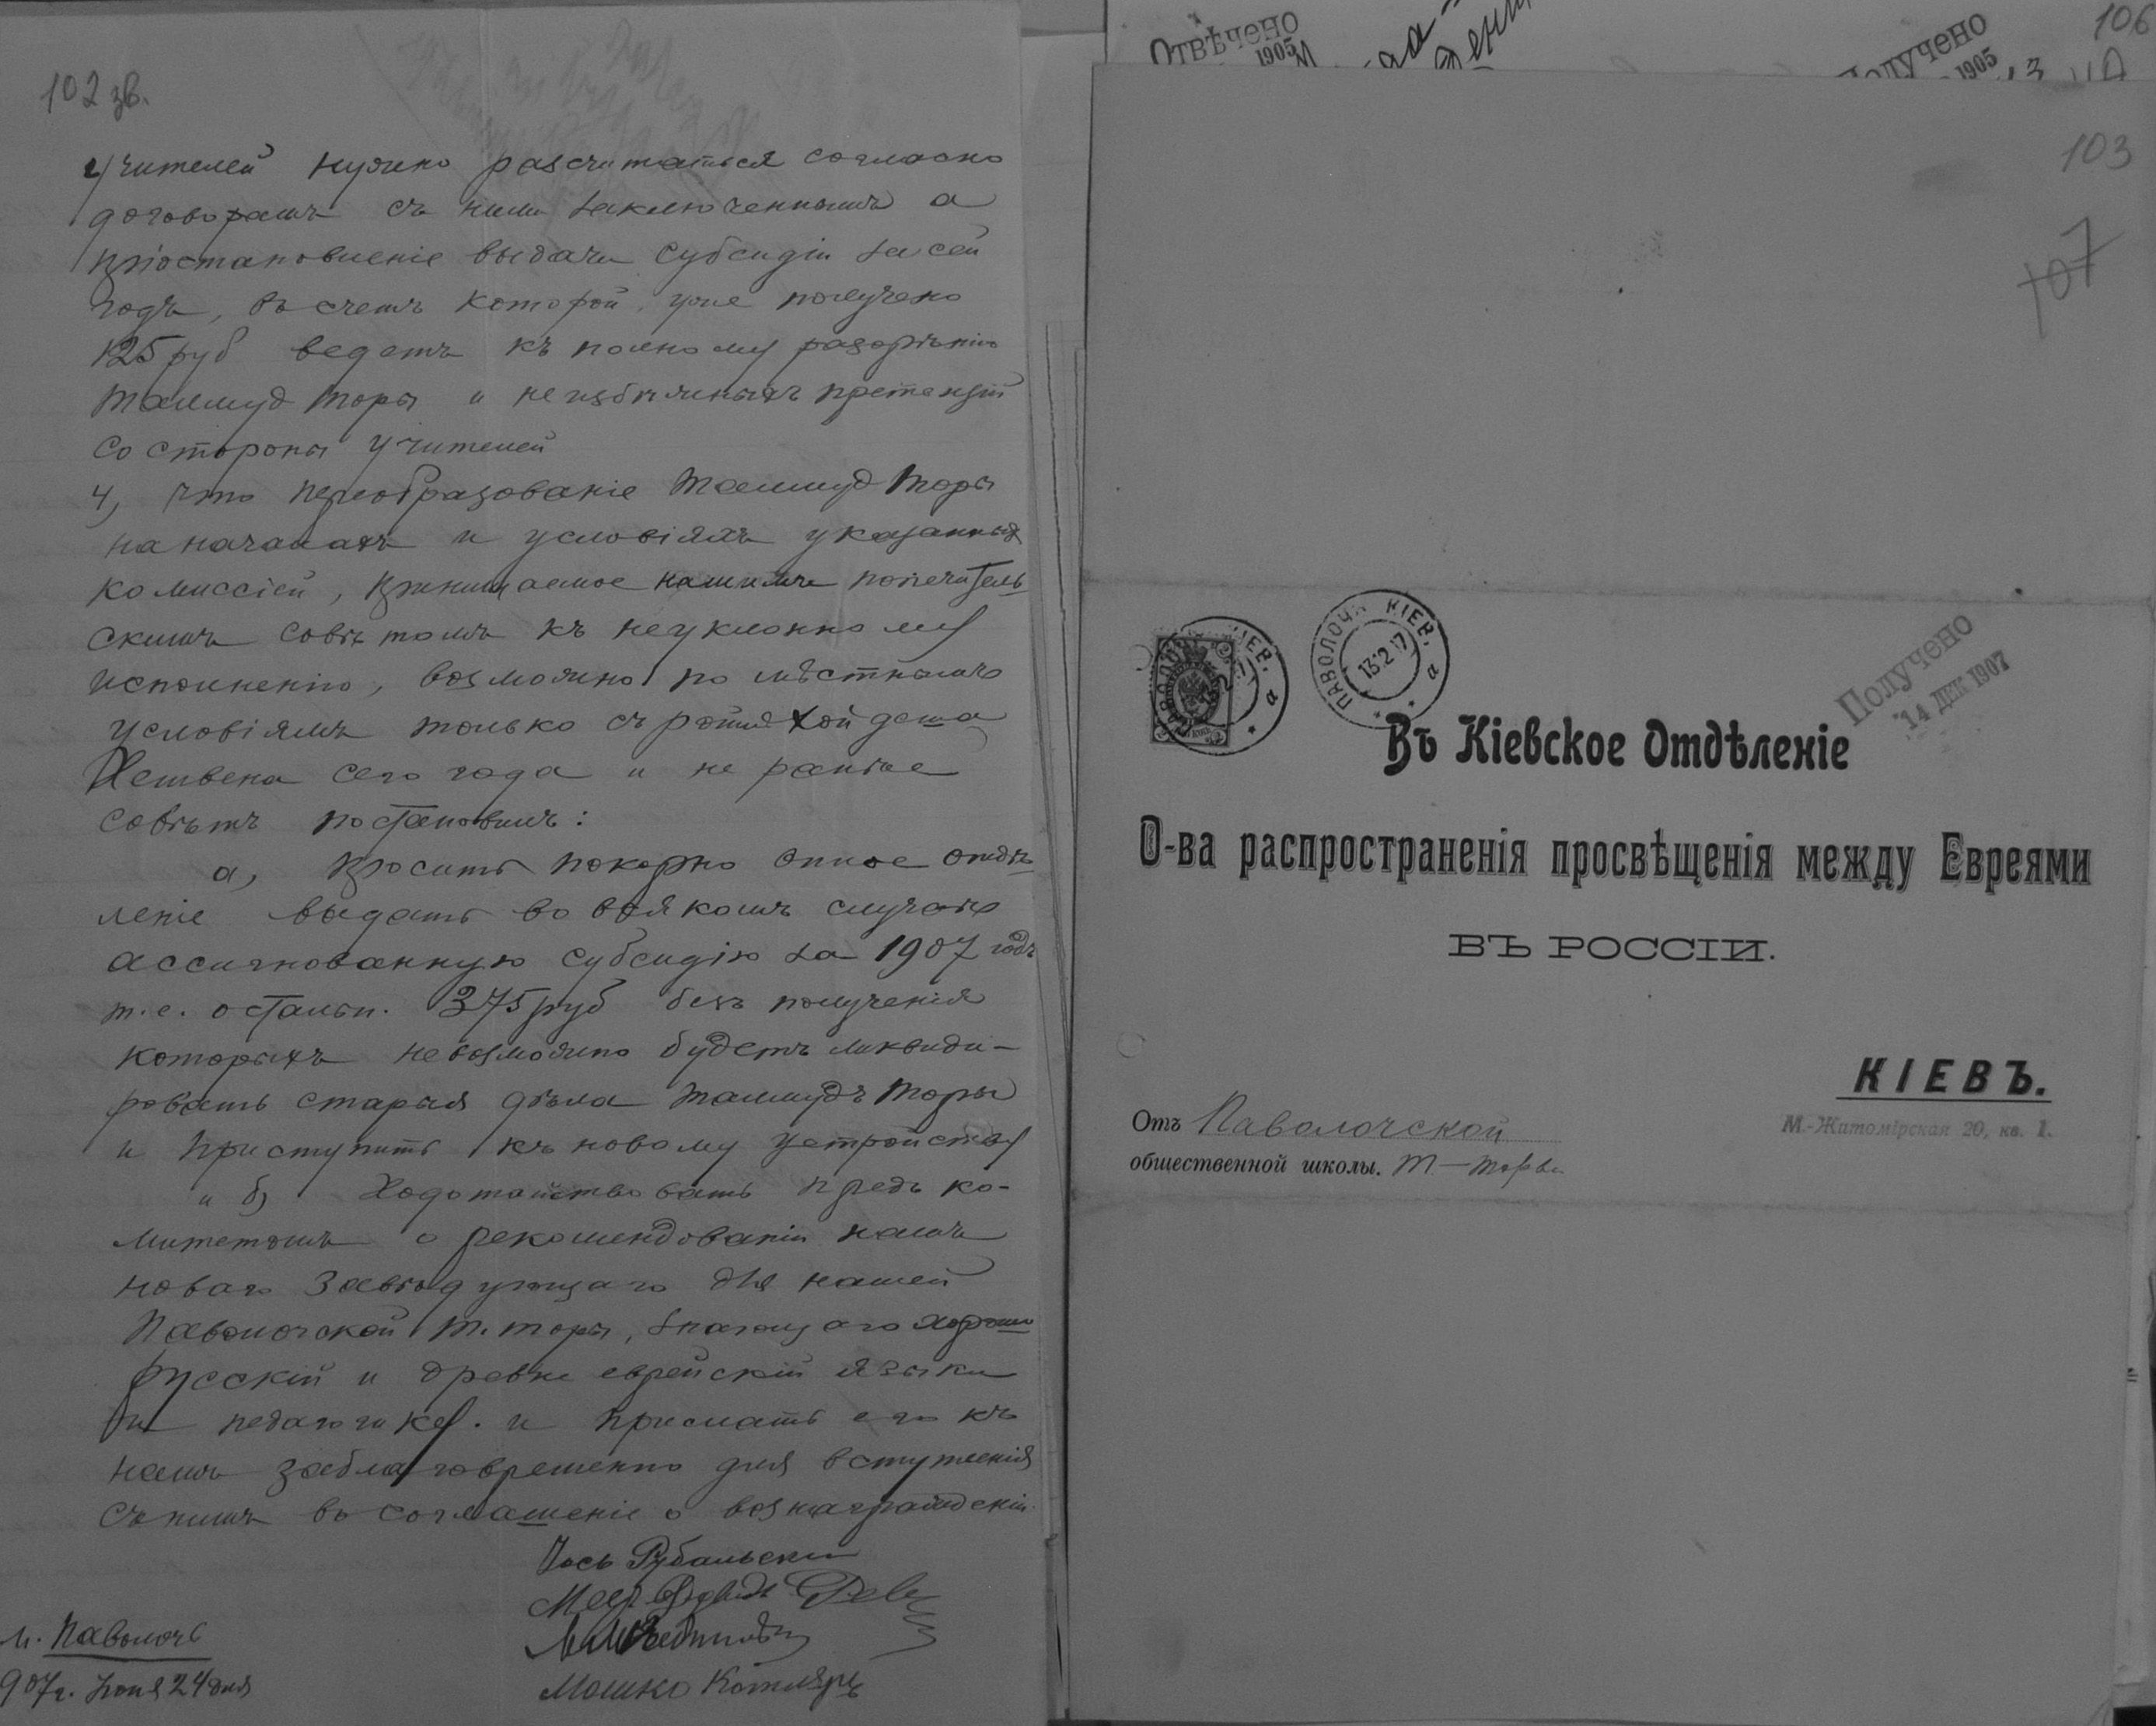 102 зв.
учителей нужно разсчитаться согласно
договорамъ съ ними заключеннымъ а
пріостановленіе выдачи субсидіи за сей
годъ, въ счетъ которой уже получено
125 руб ведетъ къ полному разорѣнію
Талмуд Торы и неизбѣжныхъ претензій
со стороны учителей
4, что преобразованіе Талмуд Торы
на началахъ и условіяхъ указанных
комиссіей, принимаемое нашимъ попечитель
скимъ совѣтомъ къ неуклонному
исполненію, возможно по мѣстнымъ
условіямъ только съ рошъ хойдеша
Хешвена сего года и не ранѣе
совѣтъ постановилъ:
а, просить покорно оное отдѣ
леніе выдать во всякомъ случаѣ
ассигнованную субсидію за 1907 годъ
т.е. остальн. 375 руб безъ полученія
которыхъ невозможно будетъ ликвиди-
ровать старыя дѣла Талмудъ Торы
и приступить къ новому устройству
и б, Ходотайствовать предъ ко-
митетомъ о рекомендованіи намъ
новаго Завѣдующаго для нашей
Паволочской Т. торы, знающаго хорошо
русскій и древне еврейскій языки
и педагогику. и прислать его къ
намъ заблаговременно для вступленія
съ нимъ въ соглашеніе о вознагражденіи
Іось Рубальскій
Меер
Мошко Котляръ
м. Паволочь
907 г. Іюня 24 дня
Отвѣчено
1905
Получено
1905
106
103
107
ПАВОЛОЧЬ КІЕВ.
13 12 07
а
Получено
14 ДЕК 1907
Въ Кіевское Отдѣленіе
О-ва распространенія просвѣщенія между Евреями
ВЪ РОССІИ.
КІЕВЪ.
М.-Житомірская 20, кв. 1.
Отъ Паволочской
общественной школы. Т-Торы